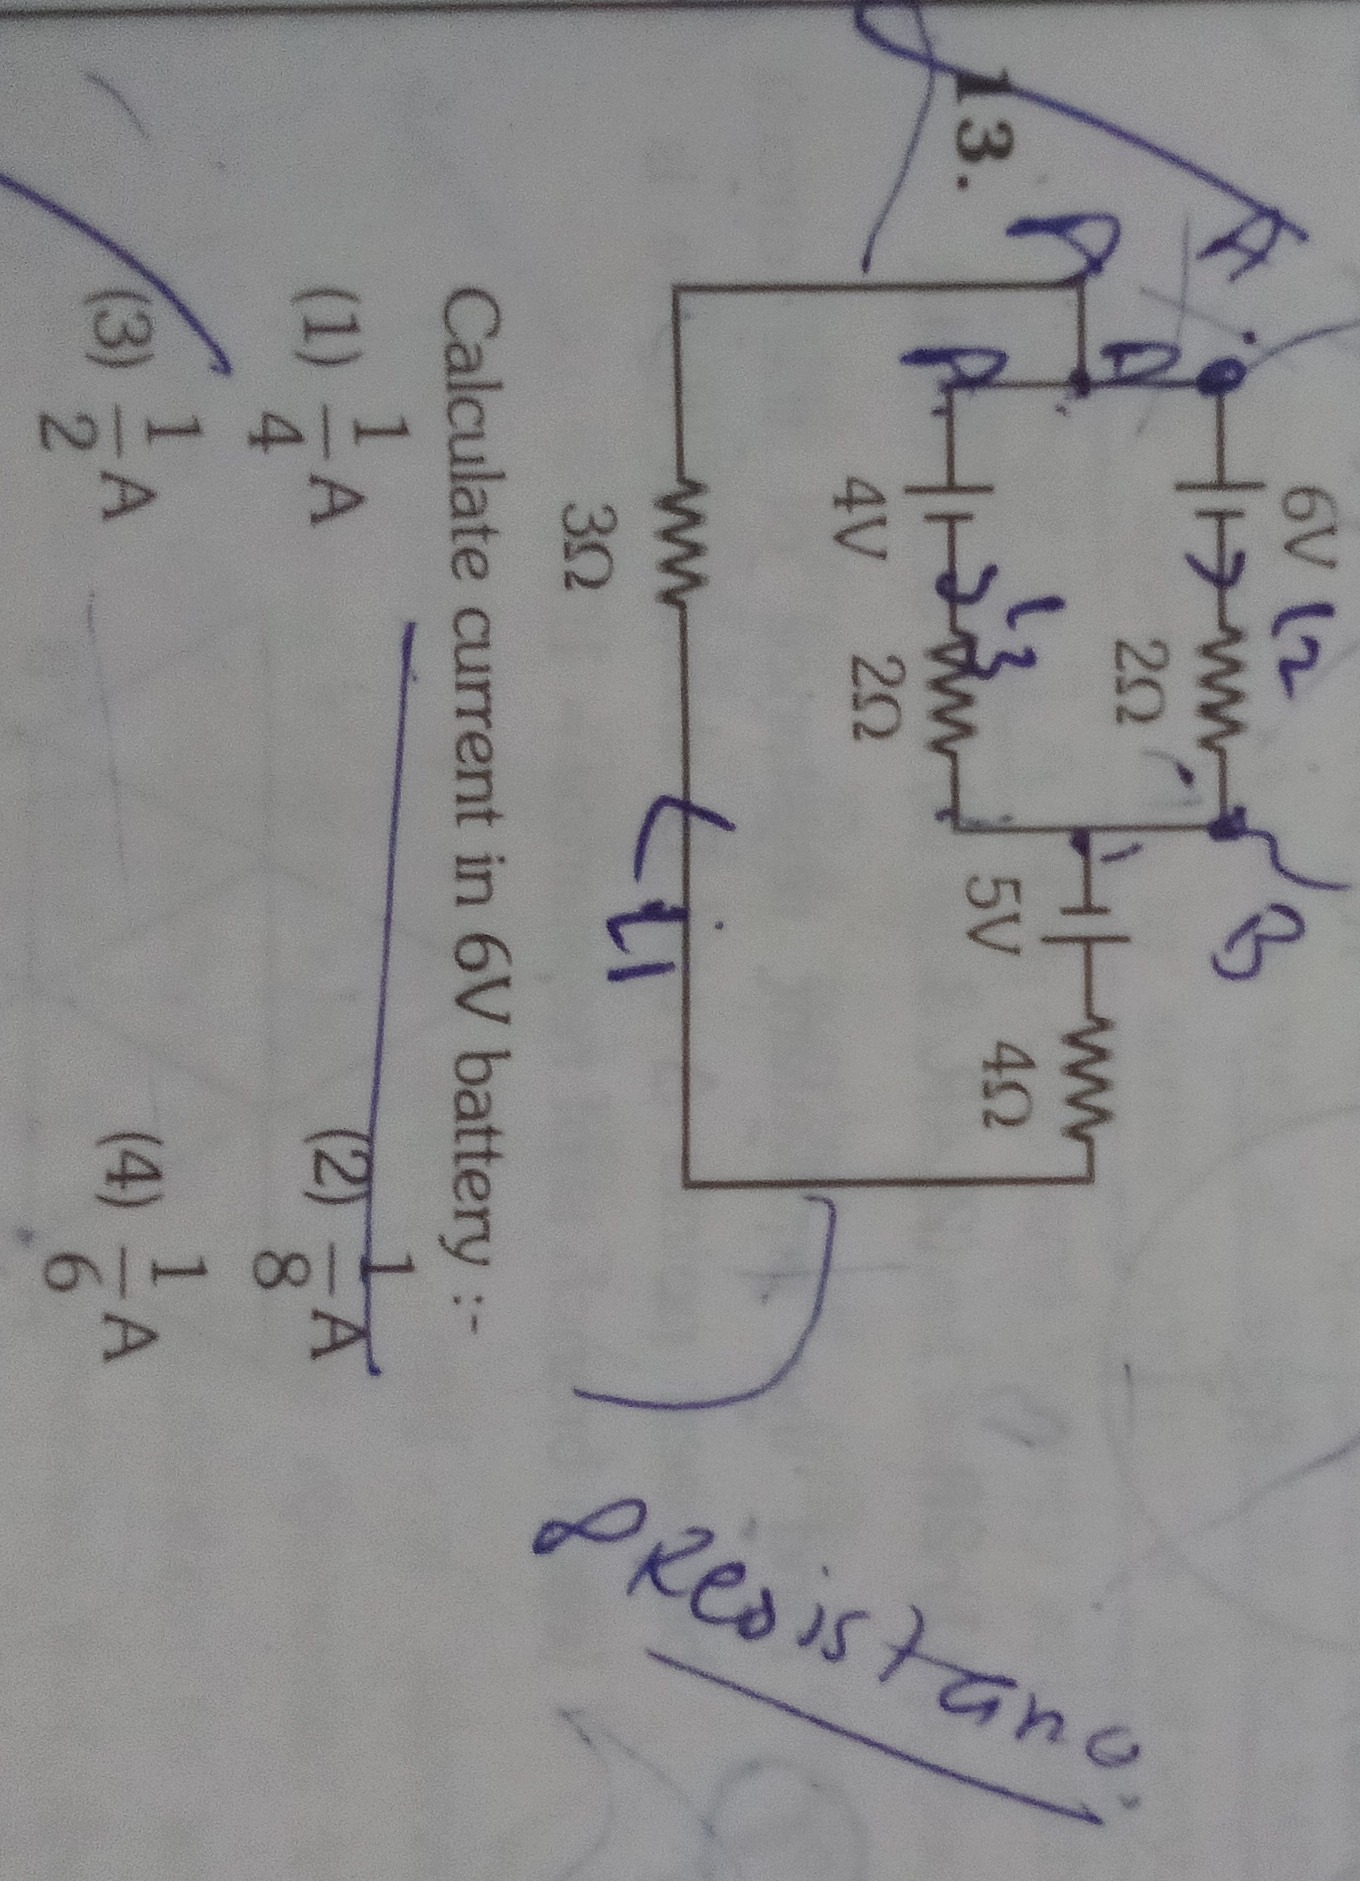 13.
A
A
A
A
6V
2Ω
i2
B
4V
2Ω
i3
5V
4Ω
3Ω
i1
Calculate current in 6V battery :-
(1) 1/4 A
(2) 1/8 A
(3) 1/2 A
(4) 1/6 A